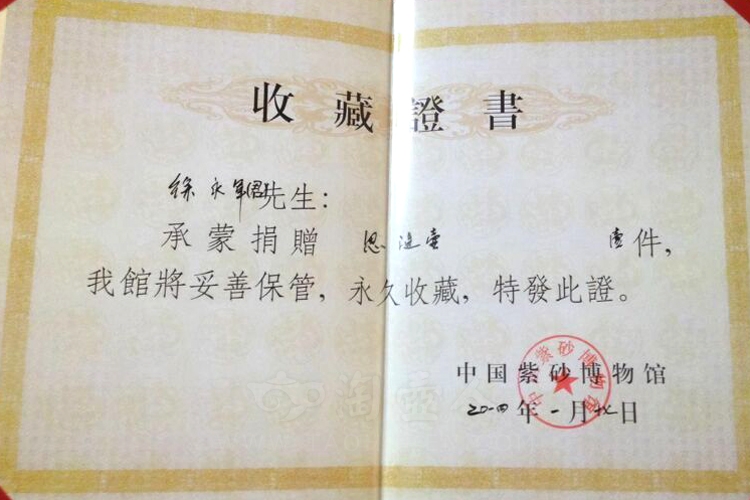 收藏證書
徐永军(君)先生：
承蒙捐贈 思 壶 壹件，
我館將妥善保管，永久收藏，特發此證。
中国紫砂博物馆
二〇一四年一月十七日